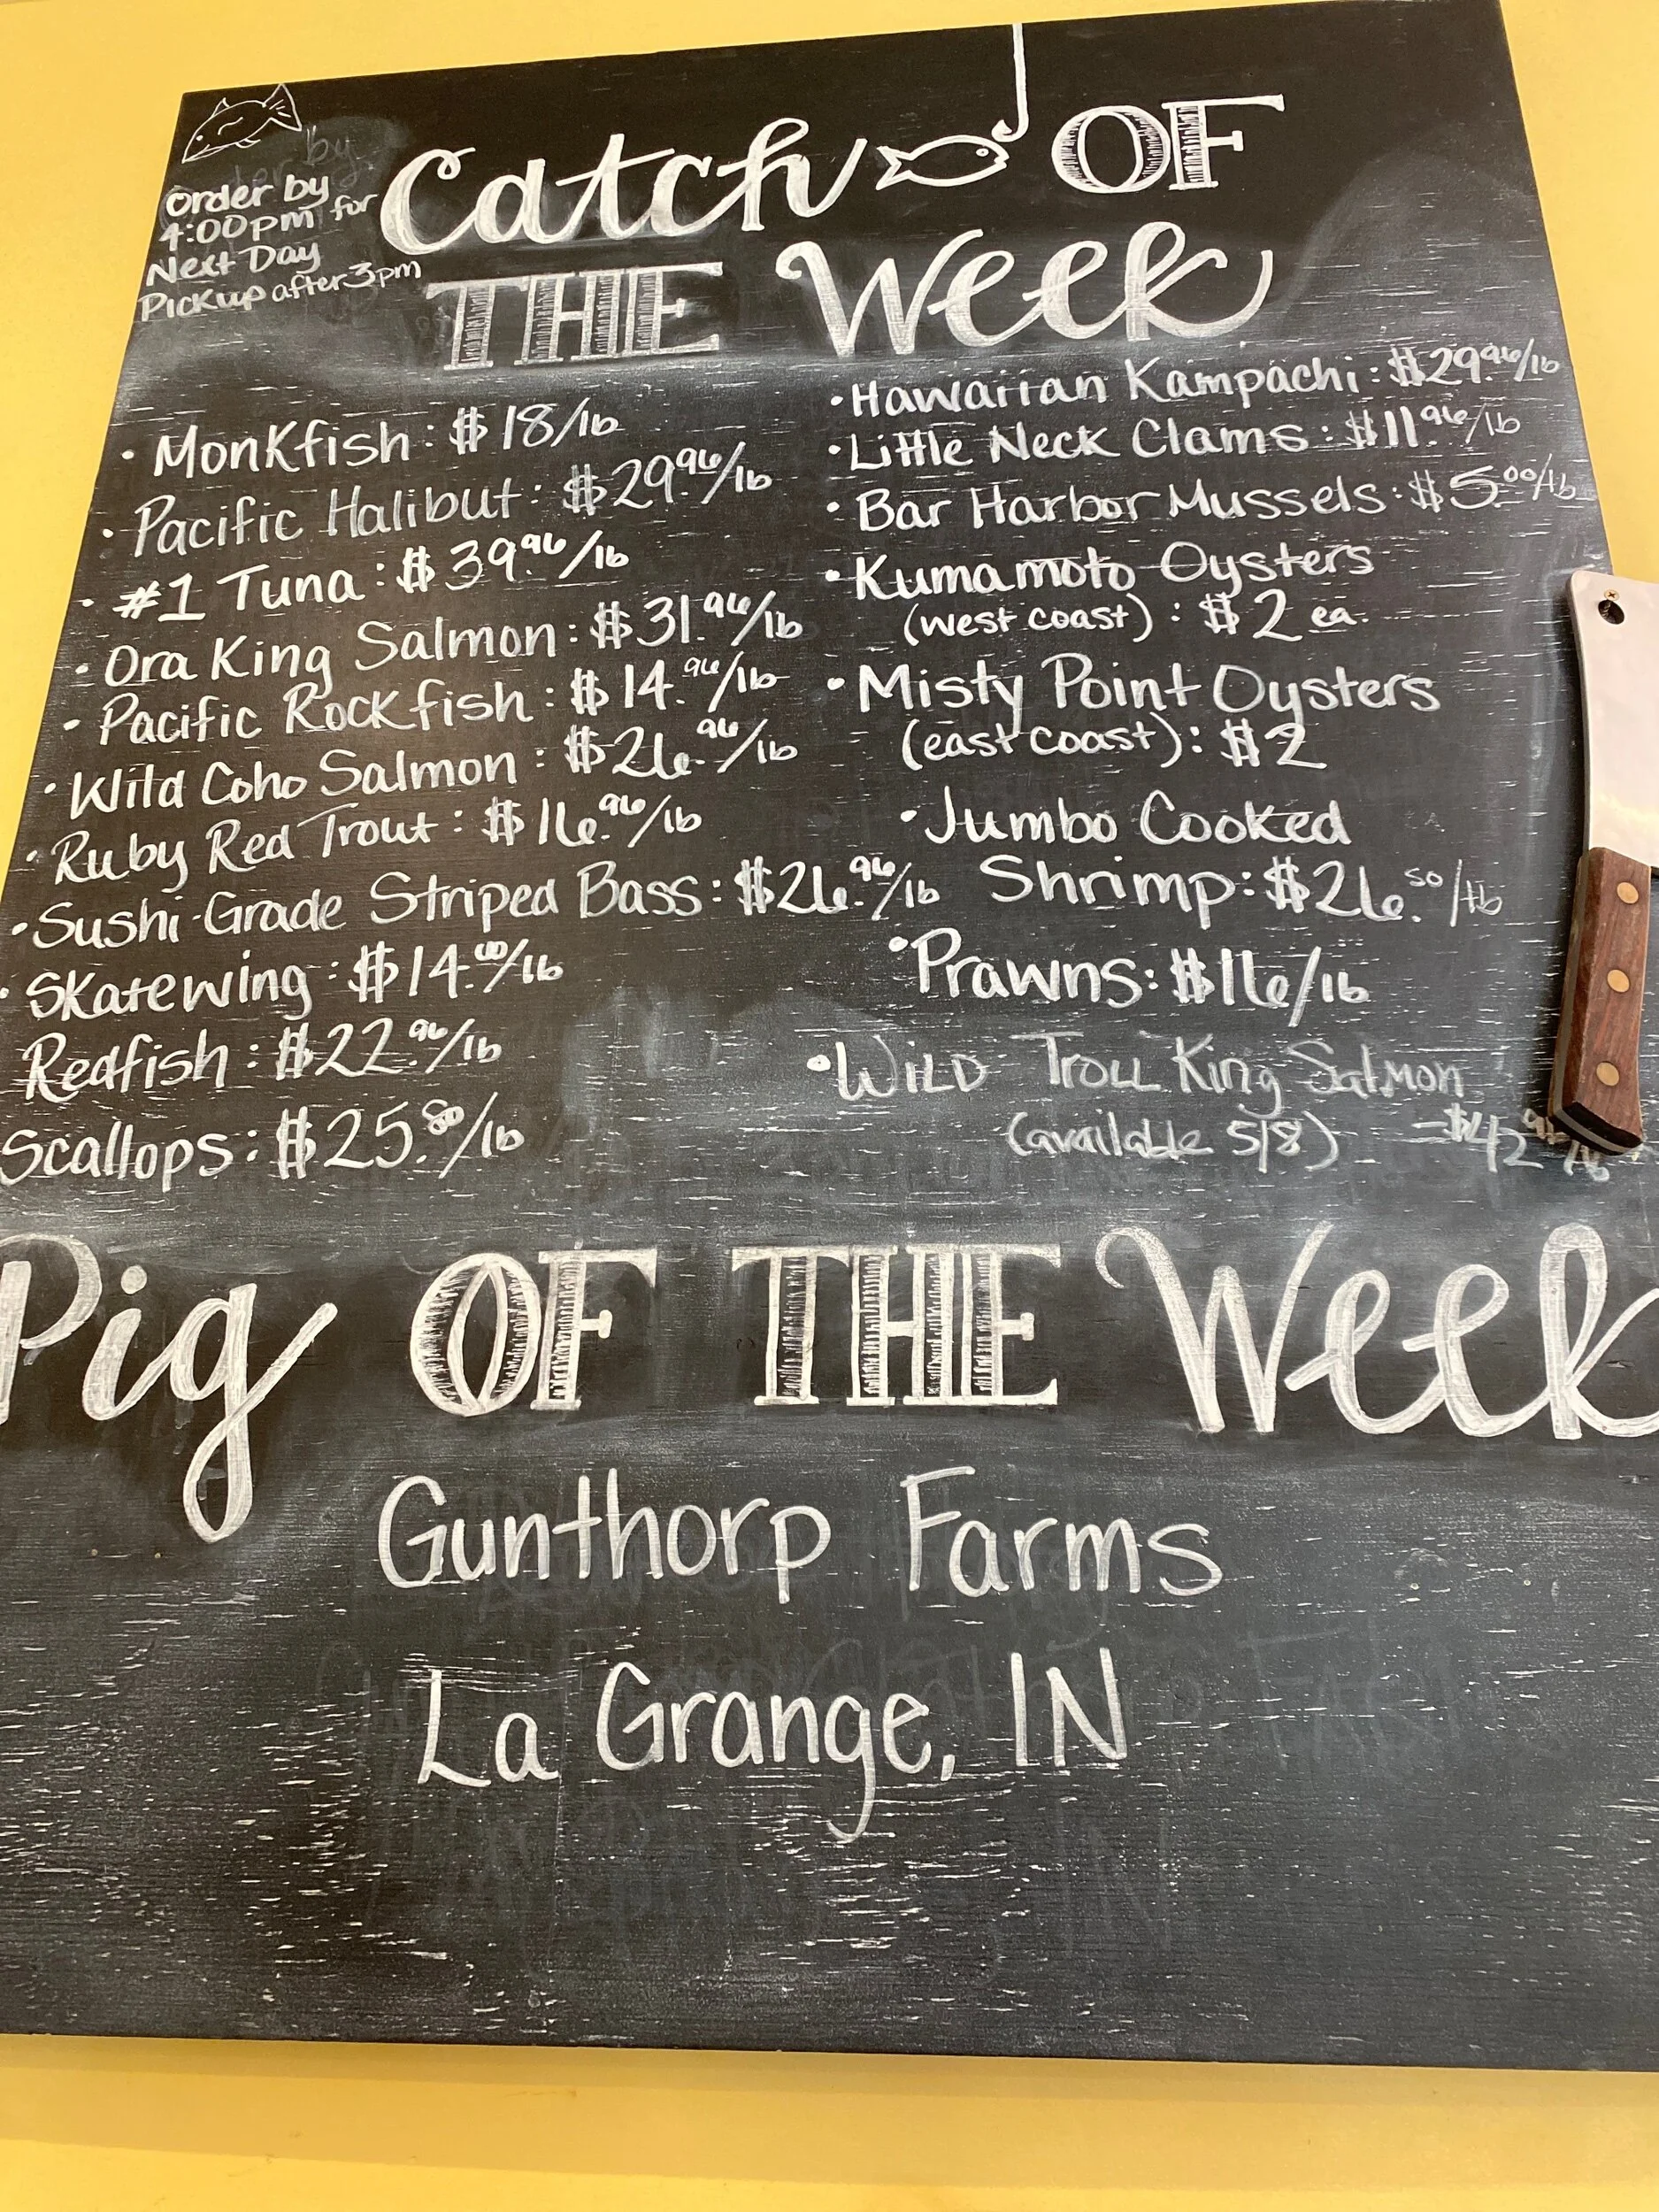 Order by
4:00pm for
Next Day
Pickup after 3pm
Catch OF
THE Week
• Monkfish: $18/lb
• Pacific Halibut: $29.96/lb
• #1 Tuna: $39.96/lb
• Ora King Salmon: $31.96/lb
• Pacific Rockfish: $14.96/lb
• Wild Coho Salmon: $26.96/lb
• Ruby Red Trout: $16.96/lb
• Sushi-Grade Striped Bass: $26.96/lb
• Skatewing: $14.00/lb
Redfish: $22.96/lb
Scallops: $25.50/lb
• Hawaiian Kampachi: $29.96/lb
• Little Neck Clams: $11.96/lb
• Bar Harbor Mussels: $5.00/lb
• Kumamoto Oysters
(west coast): $2 ea.
• Misty Point Oysters
(east coast): $2
• Jumbo Cooked
Shrimp: $26.50/lb
• Prawns: $16/lb
• Wild Troll King Salmon
(available 5/8) - $42
Pig OF THE Week
Gunthorp Farms
La Grange, IN